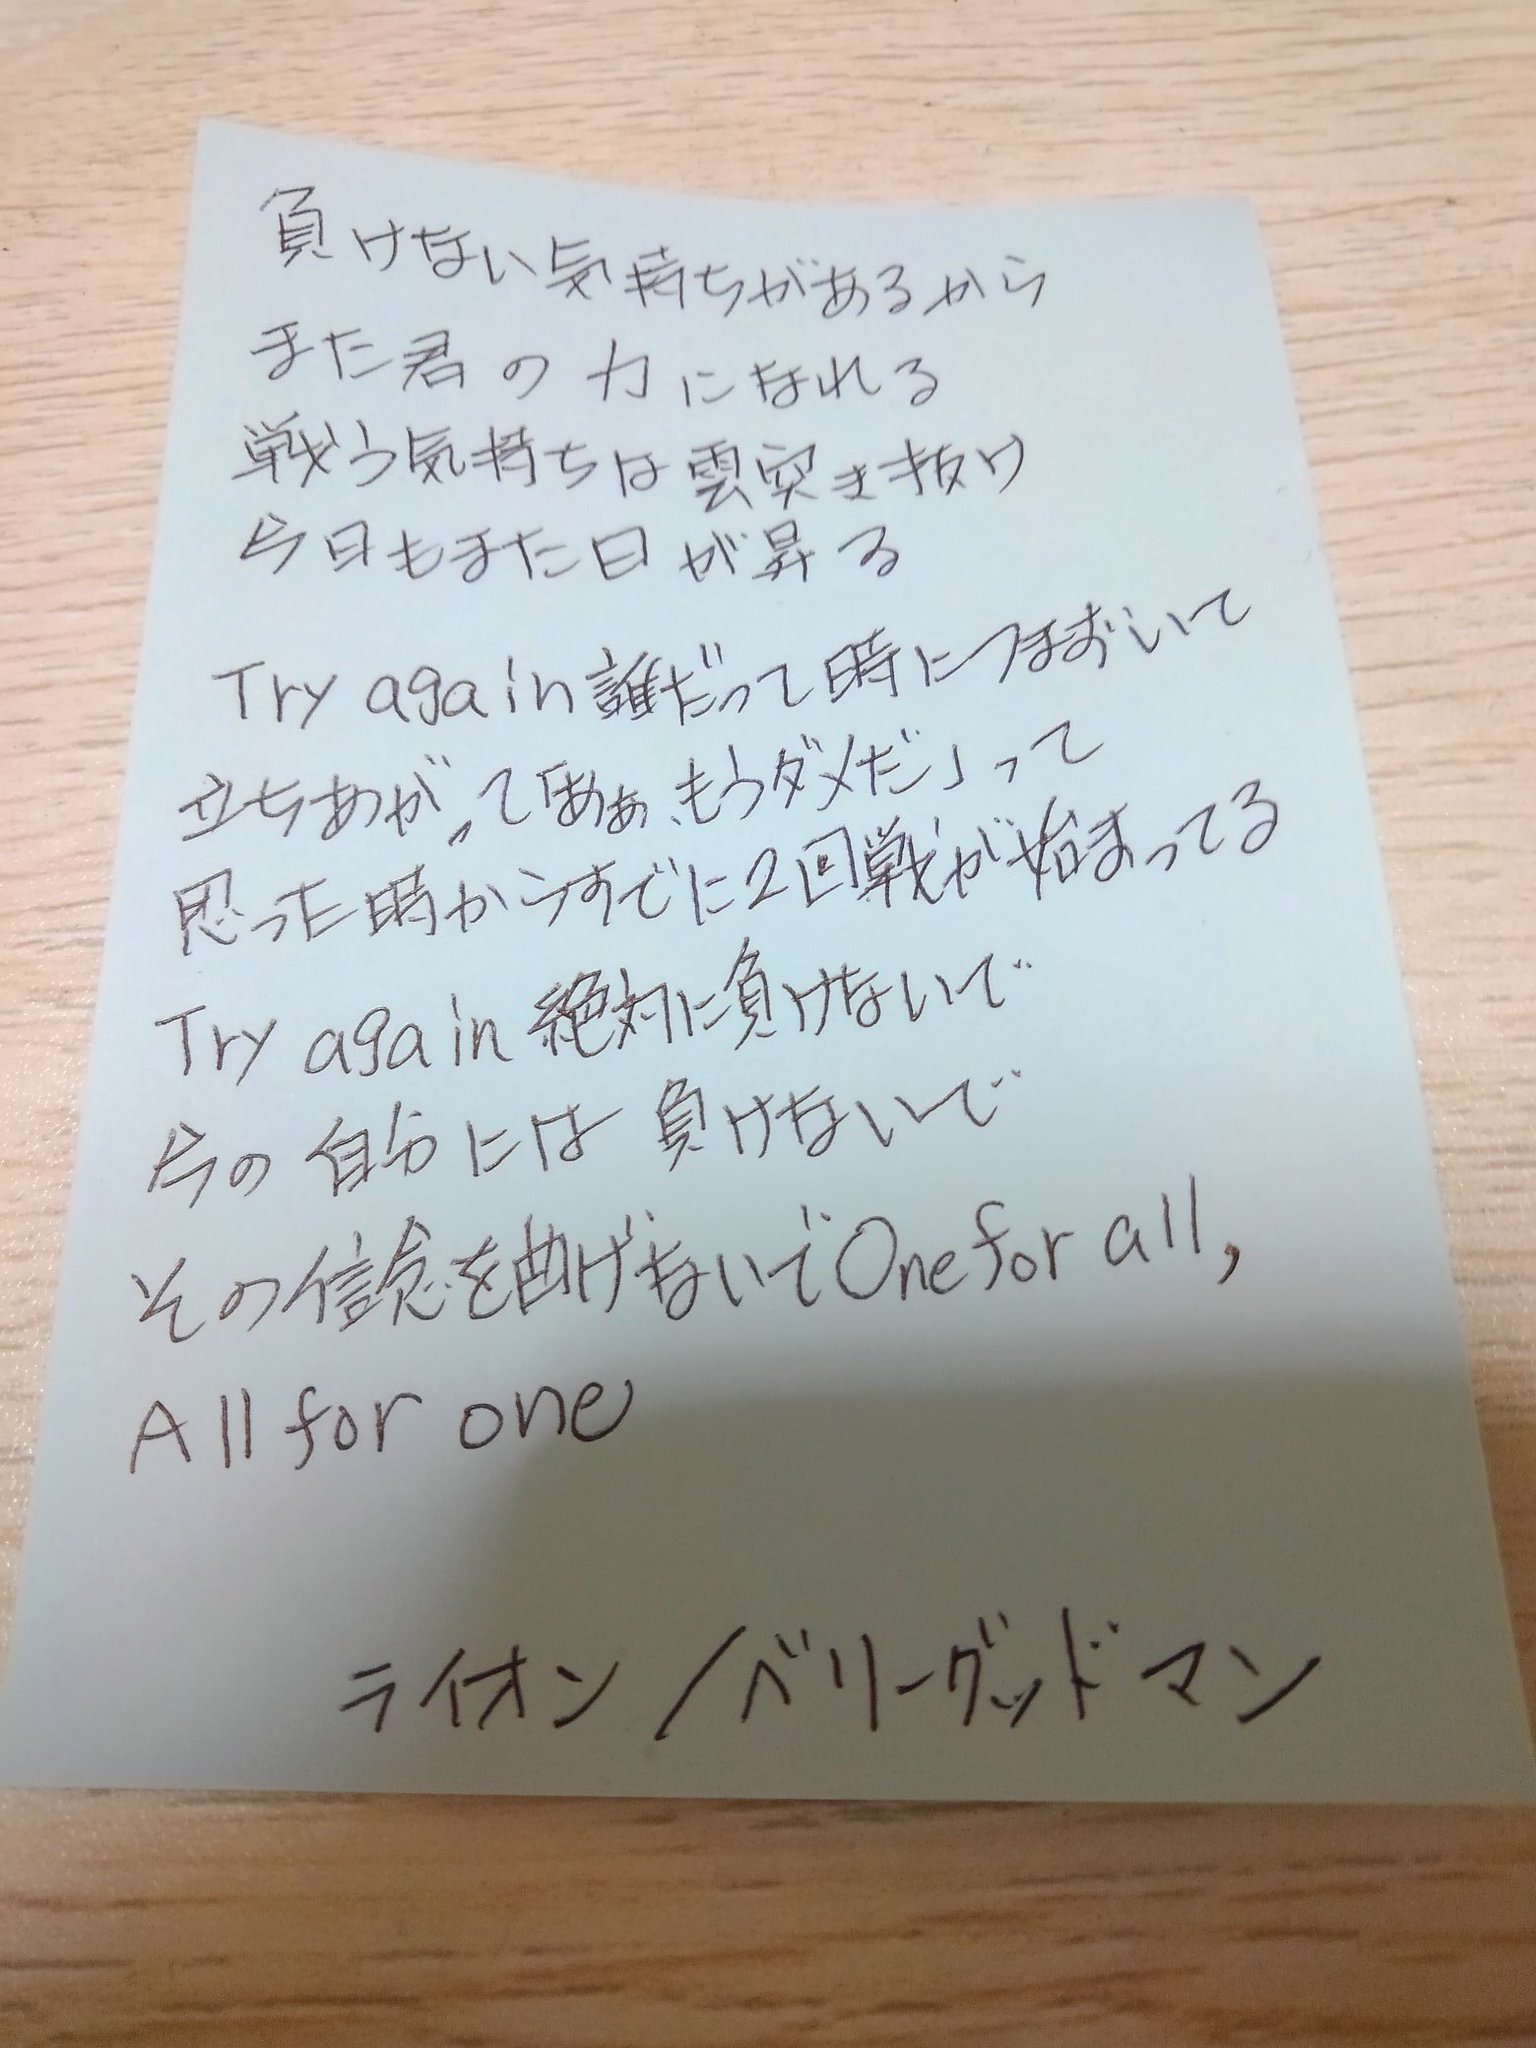 負けない気持ちがあるから
また君の力になれる
戦う気持ちは雲突き抜け
今日もまた日が昇る
Try again 誰だって時につまずいて
立ちあがって「あぁ、もうダメだ」って
思った時からすでに2回戦が始まってる
Try again 絶対に負けないで
今の自分には負けないで
その信念を曲げないで One for all,
All for one
ライオン/ベリーグッドマン